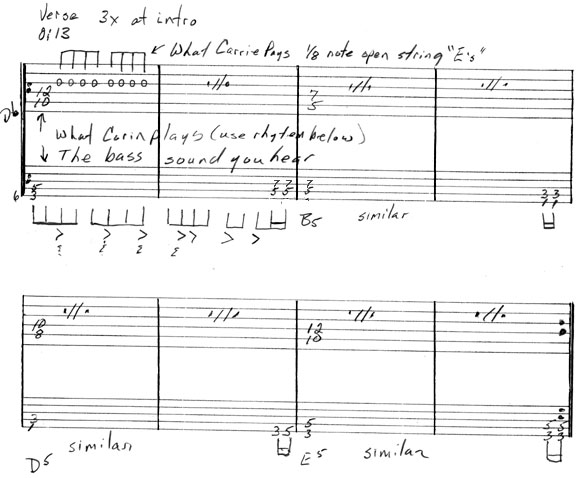 Verse 3x at intro
0:13
What Carrie Pays 1/8 note open string "E's"
o o o o o o o o
12
10
7
5
What Corin plays (use rhytem below)
The bass sound you hear
5
3
7 7
5 5
7
5
3 3
1 1
B5 similar
similar
10
8
12
10
3
1
3 5
5
3
5 5
3 3
similar
D5
E5 similar